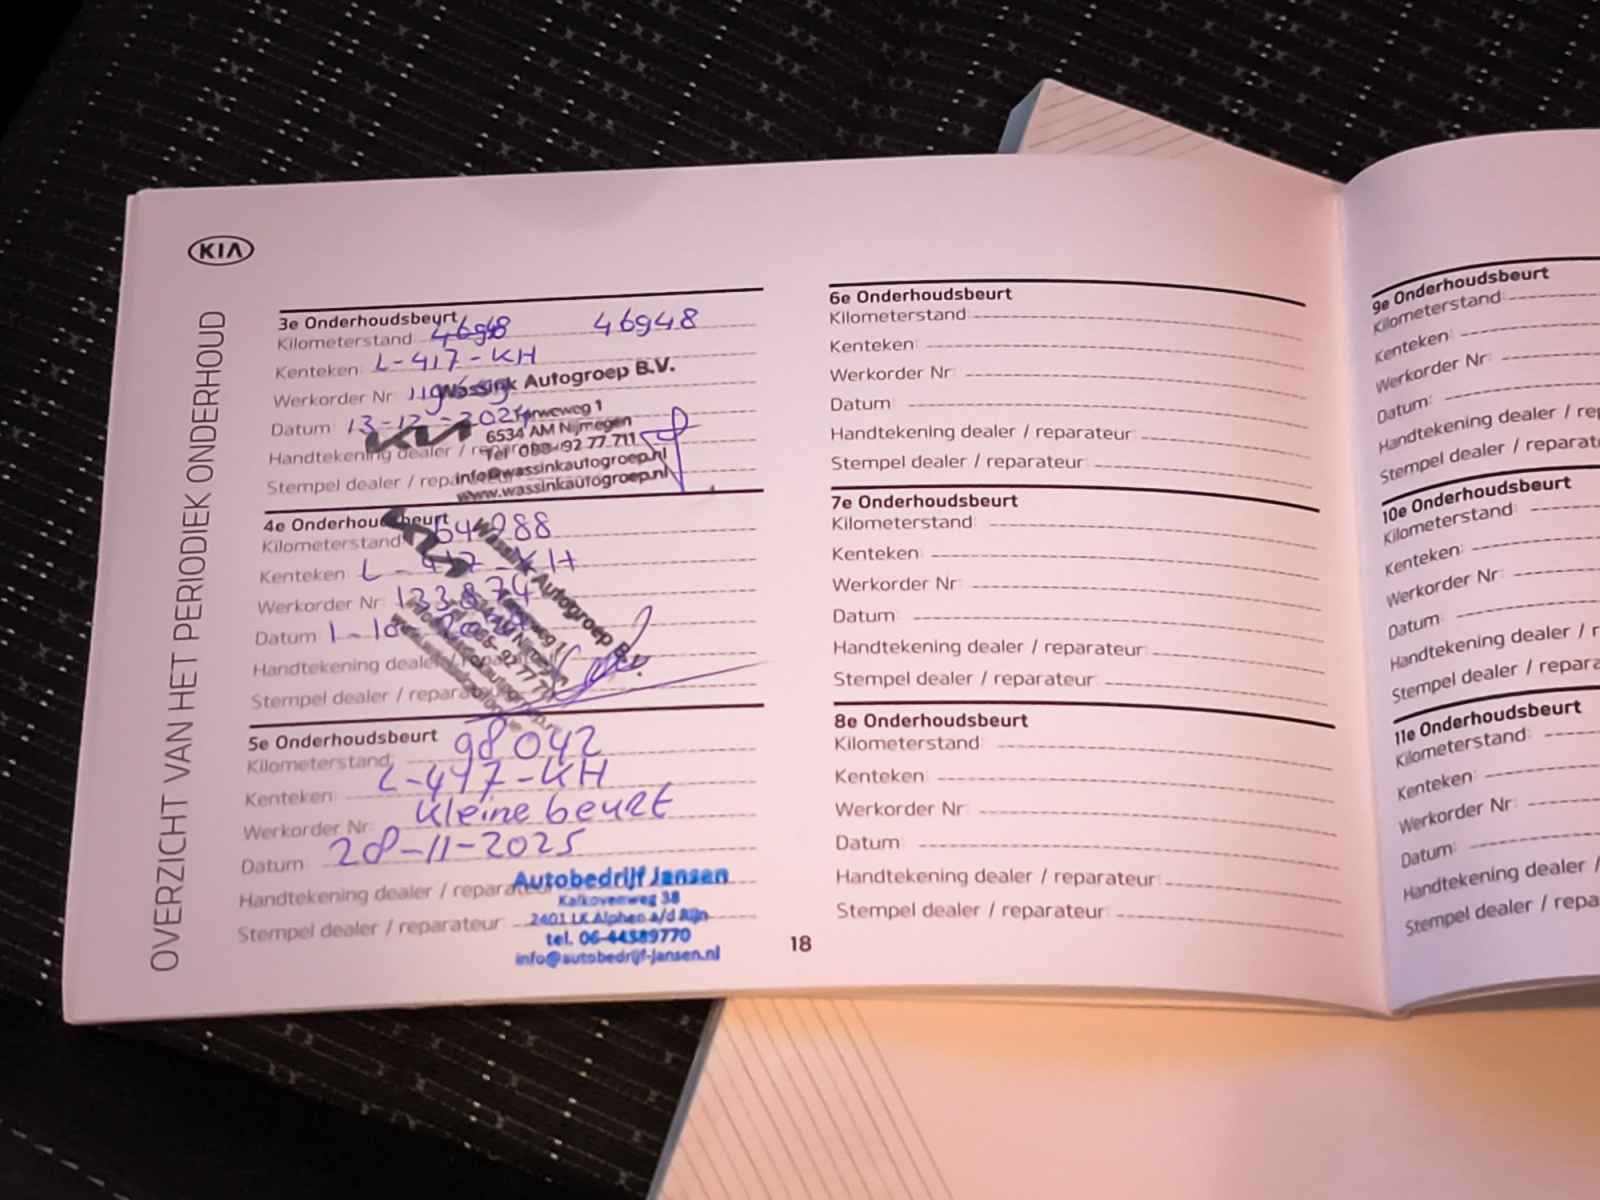 KIA
OVERZICHT VAN HET PERIODIEK ONDERHOUD
3e Onderhoudsbeurt
Kilometerstand 46948 46948
Kenteken: L-417-KH
Werkorder Nr
Datum 13-12-2024
Handtekening dealer /
Stempel dealer /
Wassink Autogroep B.V.
6534 AM Nijmegen
info@wassinkautogroep.nl
www.wassinkautogroep.nl
4e Onderhoudsbeurt
Kilometerstand
Kenteken L-417-KH
Werkorder Nr: 133874
Datum
Handtekening dealer /
Stempel dealer /
Wassink Autogroep B.V.
5e Onderhoudsbeurt
Kilometerstand: 98042
Kenteken: L-417-KH
Werkorder Nr: Kleine beurt
Datum 28-11-2025
Handtekening dealer / reparateur
Stempel dealer / reparateur:
Autobedrijf Jansen
Kalkovenweg 38
2401 LK Alphen a/d Rijn
tel. 06-44589770
info@autobedrijf-jansen.nl
6e Onderhoudsbeurt
Kilometerstand:
Kenteken:
Werkorder Nr:
Datum:
Handtekening dealer / reparateur:
Stempel dealer / reparateur:
7e Onderhoudsbeurt
Kilometerstand:
Kenteken:
Werkorder Nr:
Datum:
Handtekening dealer / reparateur:
Stempel dealer / reparateur:
8e Onderhoudsbeurt
Kilometerstand:
Kenteken:
Werkorder Nr:
Datum:
Handtekening dealer / reparateur:
Stempel dealer / reparateur:
18
9e Onderhoudsbeurt
Kilometerstand:
Kenteken:
Werkorder Nr:
Datum:
Handtekening dealer /
Stempel dealer /
10e Onderhoudsbeurt
Kilometerstand:
Kenteken:
Werkorder Nr:
Datum:
Handtekening dealer /
Stempel dealer /
11e Onderhoudsbeurt
Kilometerstand:
Kenteken:
Werkorder Nr:
Datum:
Handtekening dealer /
Stempel dealer /